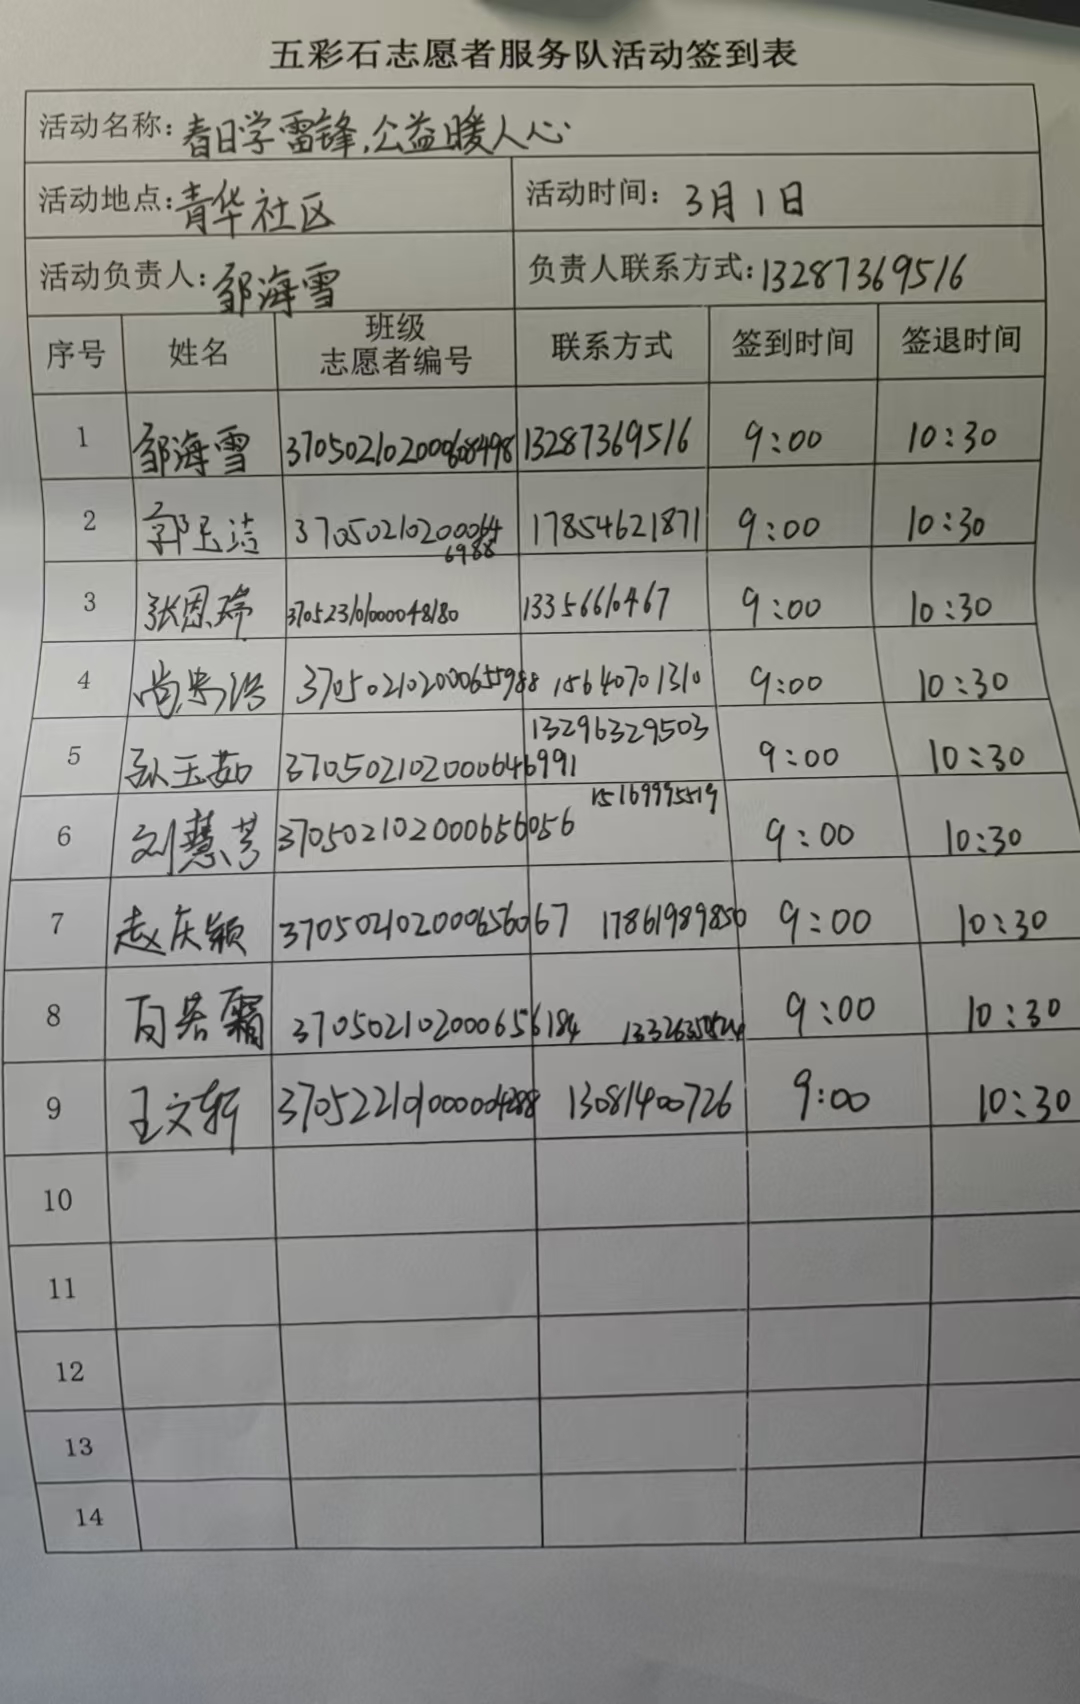 五彩石志愿者服务队活动签到表
活动名称: 春日学雷锋,公益暖人心
活动地点: 青华社区 活动时间: 3月1日
活动负责人: 邹海雪 负责人联系方式: 13287369516
序号 姓名 班级 志愿者编号 联系方式 签到时间 签退时间
1 邹海雪 370502102000608498 13287369516 9:00 10:30
2 郭玉洁 370502102000646988 17854621871 9:00 10:30
3 张恩瑞 370523101000048180 13356610467 9:00 10:30
4 尚 370502102000655988 15640701310 9:00 10:30
5 孙玉茹 370502102000646991 13296329503 9:00 10:30
6 刘慧芳 370502102000656056 15169995519 9:00 10:30
7 赵庆颖 370502102000656067 17861989850 9:00 10:30
8 霜 370502102000656184 9:00 10:30
9 王文轩 13081400726 9:00 10:30
10
11
12
13
14